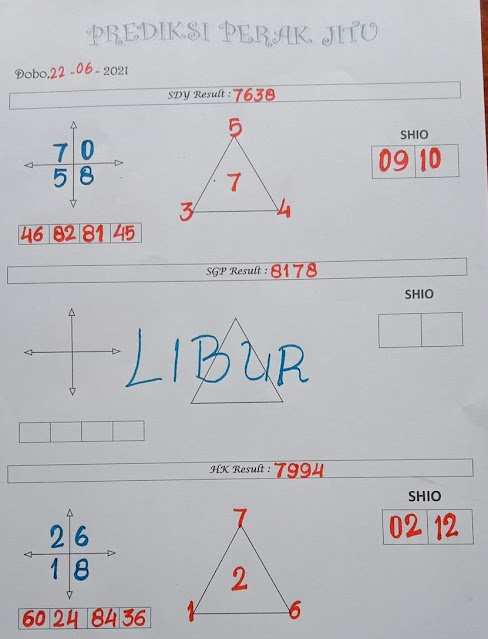 PREDIKSI PERAK JITU
Dobo, 22 - 06 - 2021
SDY Result : 7638
7 0
5 8
5
7
3 4
SHIO
09 10
46 82 81 45
SGP Result : 8178
SHIO
LIBUR
HK Result : 7994
2 6
1 8
7
2
1 6
SHIO
02 12
60 24 84 36